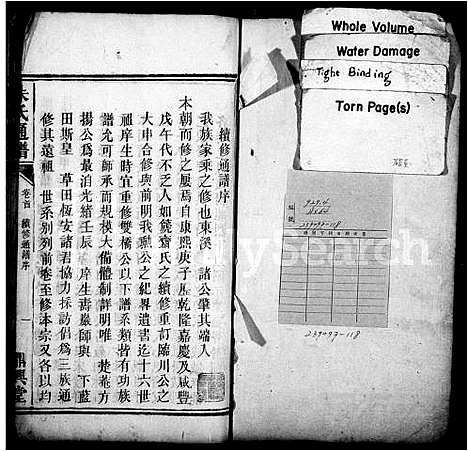 續修通譜序
我族家乘之修也東溪 諸公肇其端入
本朝而修之屢焉自康熙庚子歷乾隆嘉慶及咸豐
戊午代不乏人如鏡齋氏之續修重訂臨川公之
大申合修與前明我公之紀界遺書迄十六世
祖庠生時宜重修雙橋公以下譜系類皆有功族
譜尤可師承而規模大備體制詳明唯 楚菴方
揚公為最洎光緒壬辰 庠生壽巖師與 下藍
田斯皇 草田恆安諸君協力採訪倡為三族通
修其遠祖 世系別列前卷至修本宗又各以均
氏通譜
卷首 續修通譜序
一
Whole Volume
Water Damage
Tight Binding
Torn Page(s)
929.4
239093-118
239093-118
MySearch